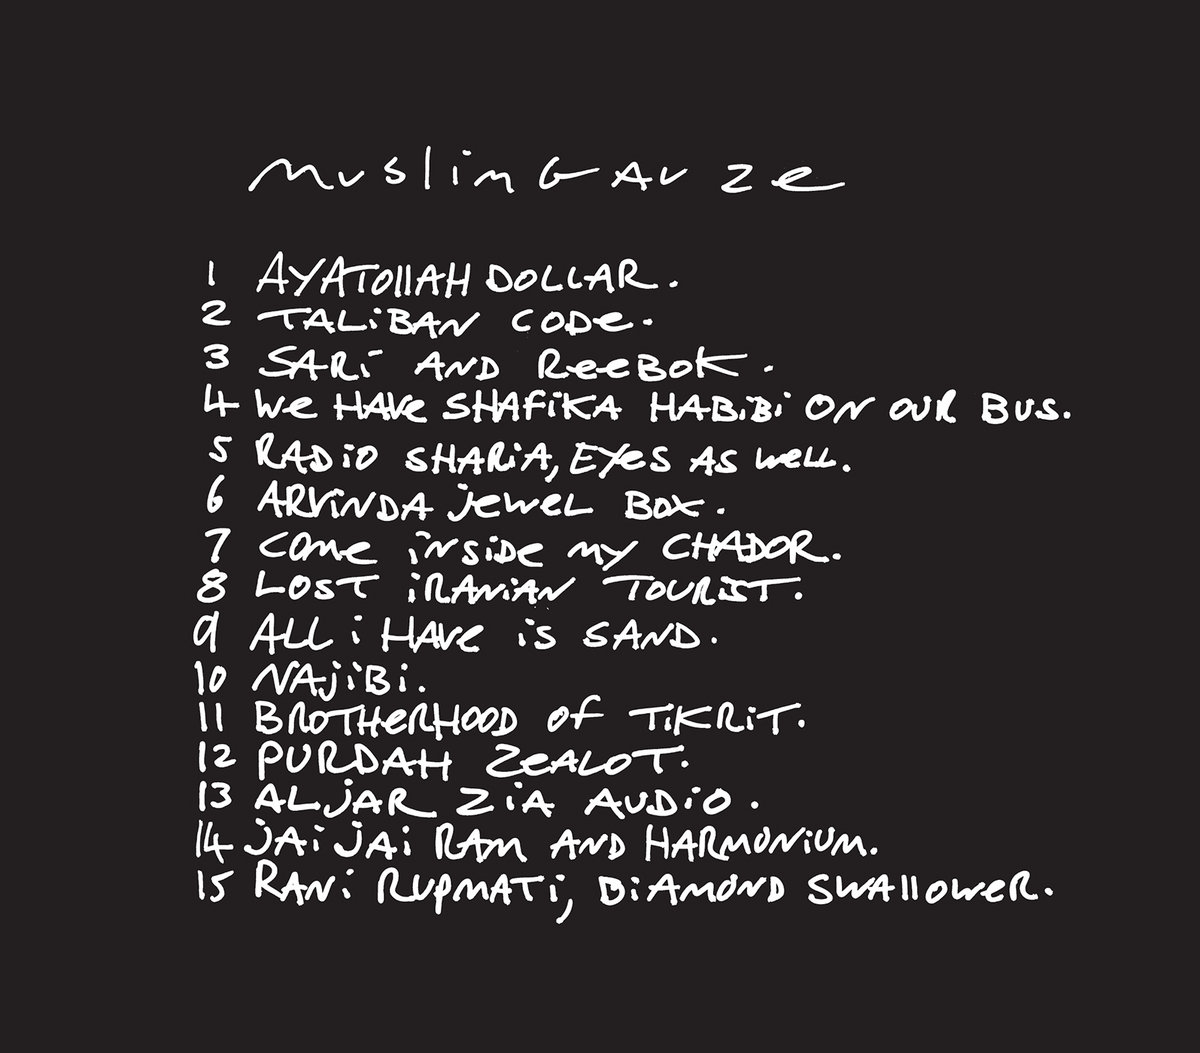 muslinGauze
1 AYATOllAH DOLLAR.
2 TALiBAN CODe.
3 SARi AND ReeBOK.
4 We HAVe SHAFiKA HABiBi ON OUR BUS.
5 RADiO SHARiA, EYeS AS well.
6 ARViNDA jeweL BOX.
7 come inSiDe my CHADOR.
8 LOST iRANiAN TOURiST.
9 ALL i HAVe iS SAND.
10 NAjiBi.
11 BROTHeRHOOD of TiKRiT.
12 PURDAH ZeALOT.
13 ALjAR ZiA AUDiO.
14 jAi jAi RAm AND HARmONiUm.
15 RANi RUPmATi, DiAmOND SWAllOweR.